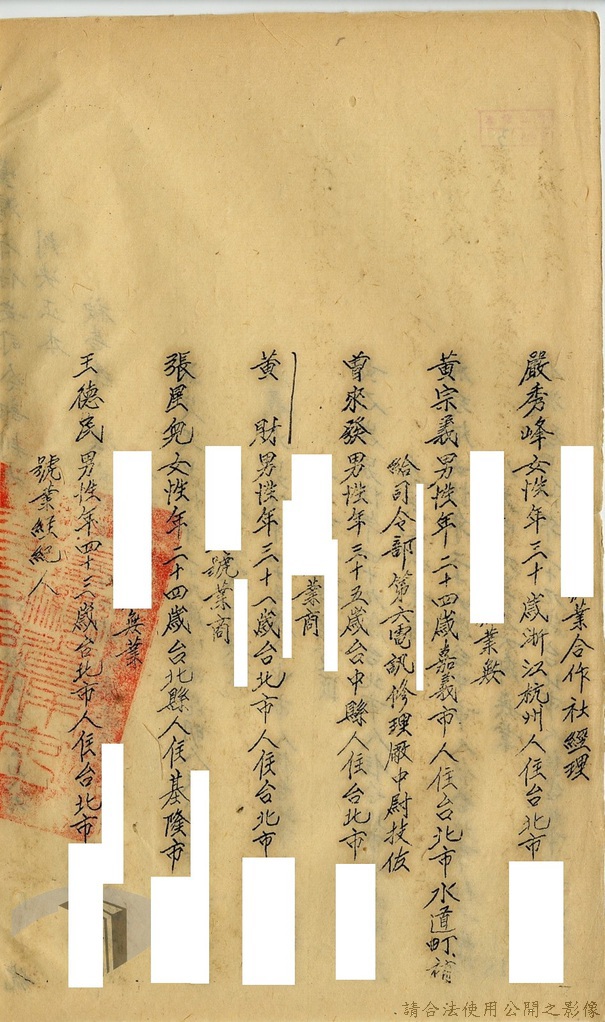 業合作社經理
嚴秀峰女性年三十歲浙江杭州人住台北市
業無
黃宗義男性年二十四歲嘉義市人住台北市水道町補
給司令部第六電訊修理廠中尉技佐
曾來發男性年三十五歲台中縣人住台北市
業商
黃財男性年三十一歲台北市人住台北市
號業商
張里兔女性年二十四歲台北縣人住基隆市
無業
王德民男性年四十三歲台北市人住台北市
號業經紀人
請合法使用公開之影像